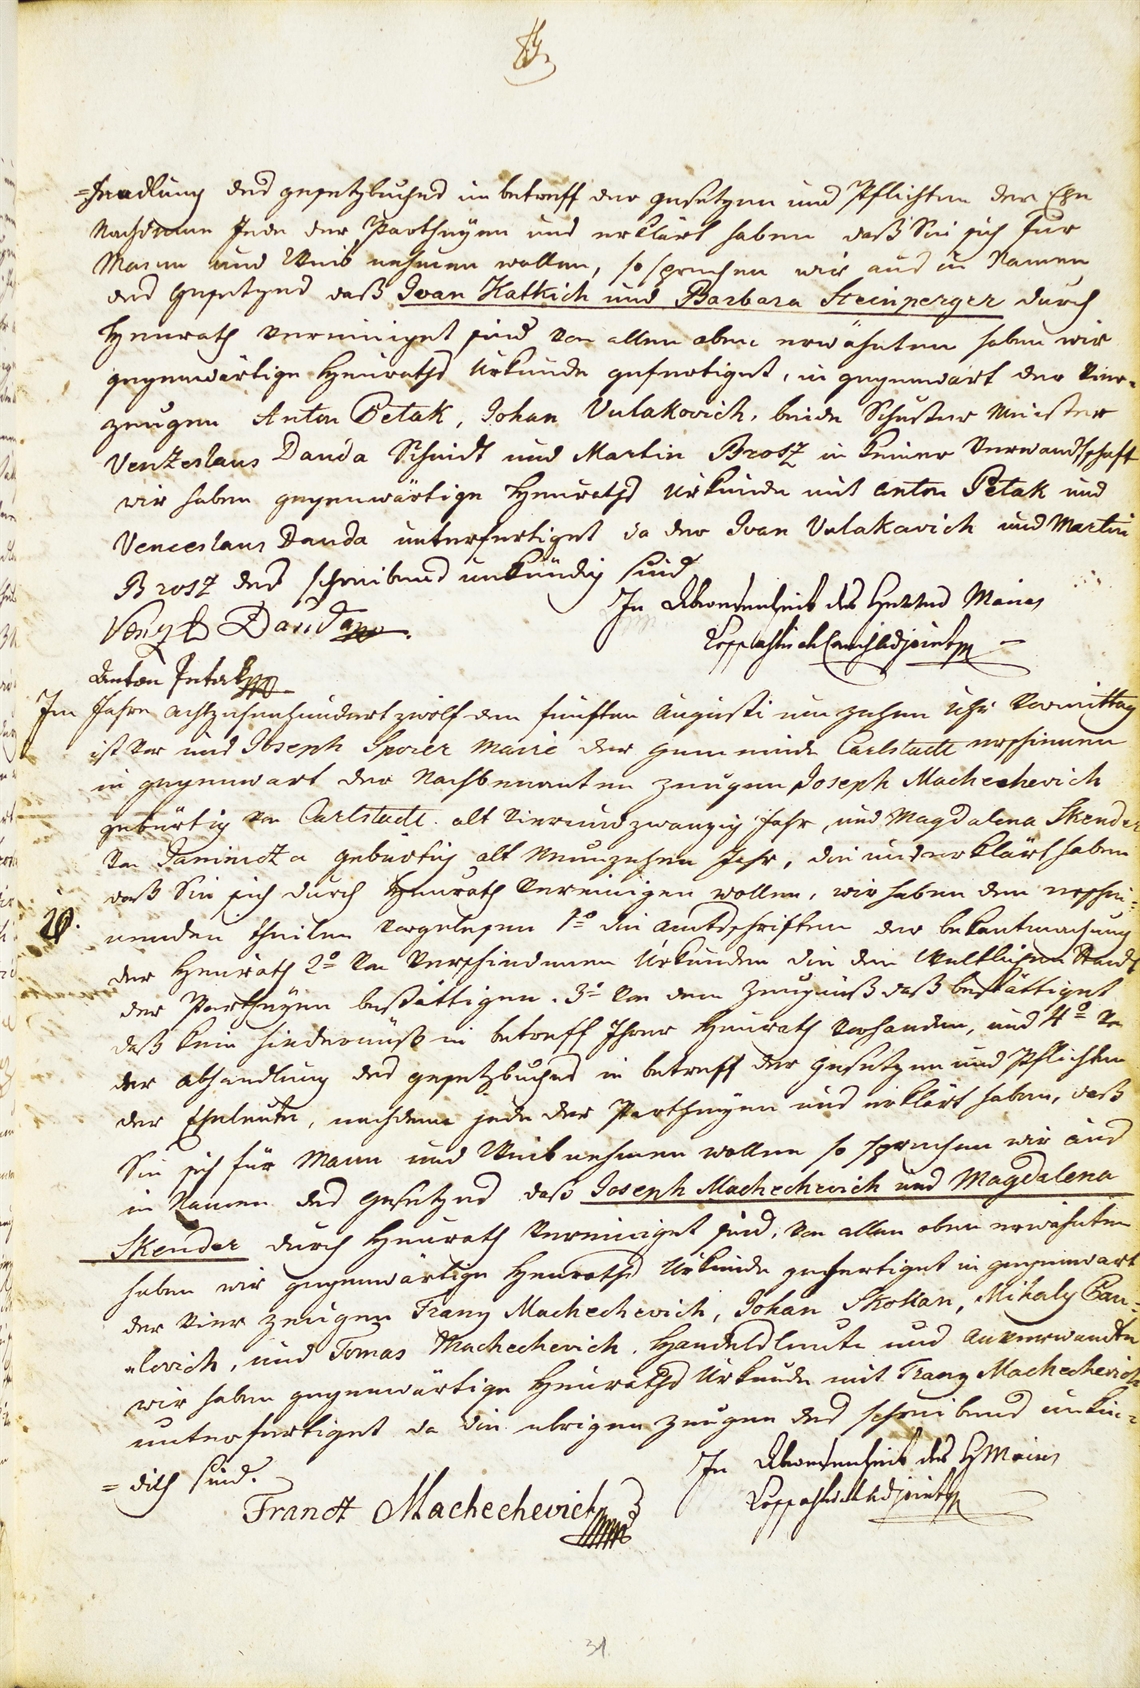 =handlung des gesetzbuches in betreff der gesetzen und Pflichten der Ehe
Nachdeme Jede der Partheyen uns erklärt haben daß Sie sich für
Mann und Weib nehmen wollen, so sprechen wir aus in Namen
des Gesetzes daß Ivan Katkich und Barbara Steinperger durch
Heurath vereiniget sind von allen oben erwähnten haben wir
gegenwärtige Heuraths Urkunde gefertiget, in gegenwart der Vier=
zeugen Anton Petak, Johan Vulakovich, beide Schuster Meister
Ventzeslaus Dauda Schmidt und Martin Brosz in keiner Verwandschaft
wir haben gegenwärtige Heuraths Urkunde mit Anton Petak und
Venceslaus Dauda unterfertiget da der Ivan Vulakavich und Martin
Brosz des schreibens unkündig sind
In Abwesenheit des Herrn Maires
Venzl Dauda
Adjoint
Anton Petak
Im Jahre achtzehenhundert zwölf den fünften Augusti um zehen Uhr Vormittag
ist vor uns Joseph Sporer Maire der gemeinde Carlstadt erschienen
in gegenwart der Nachbenanten zeugen Joseph Machechevich
gebürtig von Carlstadt alt Vierundzwanzig Jahr, und Magdalena Skender
von gebürtig alt Neunzehen Jahr, die uns erklärt haben
daß Sie sich durch Heurath vereinigen wollen, wir haben den erschei=
20.
nenden theilen vorgelesen 1º die amtsschriften der bekantmachung
der Heurath 2º von verschiedenen Urkunden die den Weltlichen Stand
der Partheyen bestättigen. 3º von dem Zeugnüß daß bestättiget
daß kein hindernüß in betreff Ihrer Heurath vorhanden, und 4º von
der abhandlung des gesetzbuches in betreff der gesetzen und Pflichten
der Eheleute, nachdeme jede der Partheyen uns erklärt haben, daß
Sie sich für Mann und Weib nehmen wollen so sprechen wir aus
in Namen des Gesetzes daß Joseph Machechevich und Magdalena
Skender durch Heurath vereiniget sind, von allen oben erwähnten
haben wir gegenwärtige Heuraths Urkunde gefertiget in gegenwart
der Vier zeugen Franz Machechevich, Johan Skottan, Mihaly Pau=
=lovich, und Tomas Machechevich, Handelsleute und Anverwandte
wir haben gegenwärtige Heuraths Urkunde mit Franz Machechevich
unterfertiget da die ubrigen zeugen des schreibens unkün=
=dich sind.
In Abwesenheit des H Maires
Adjoint
Franct Machechevich
31